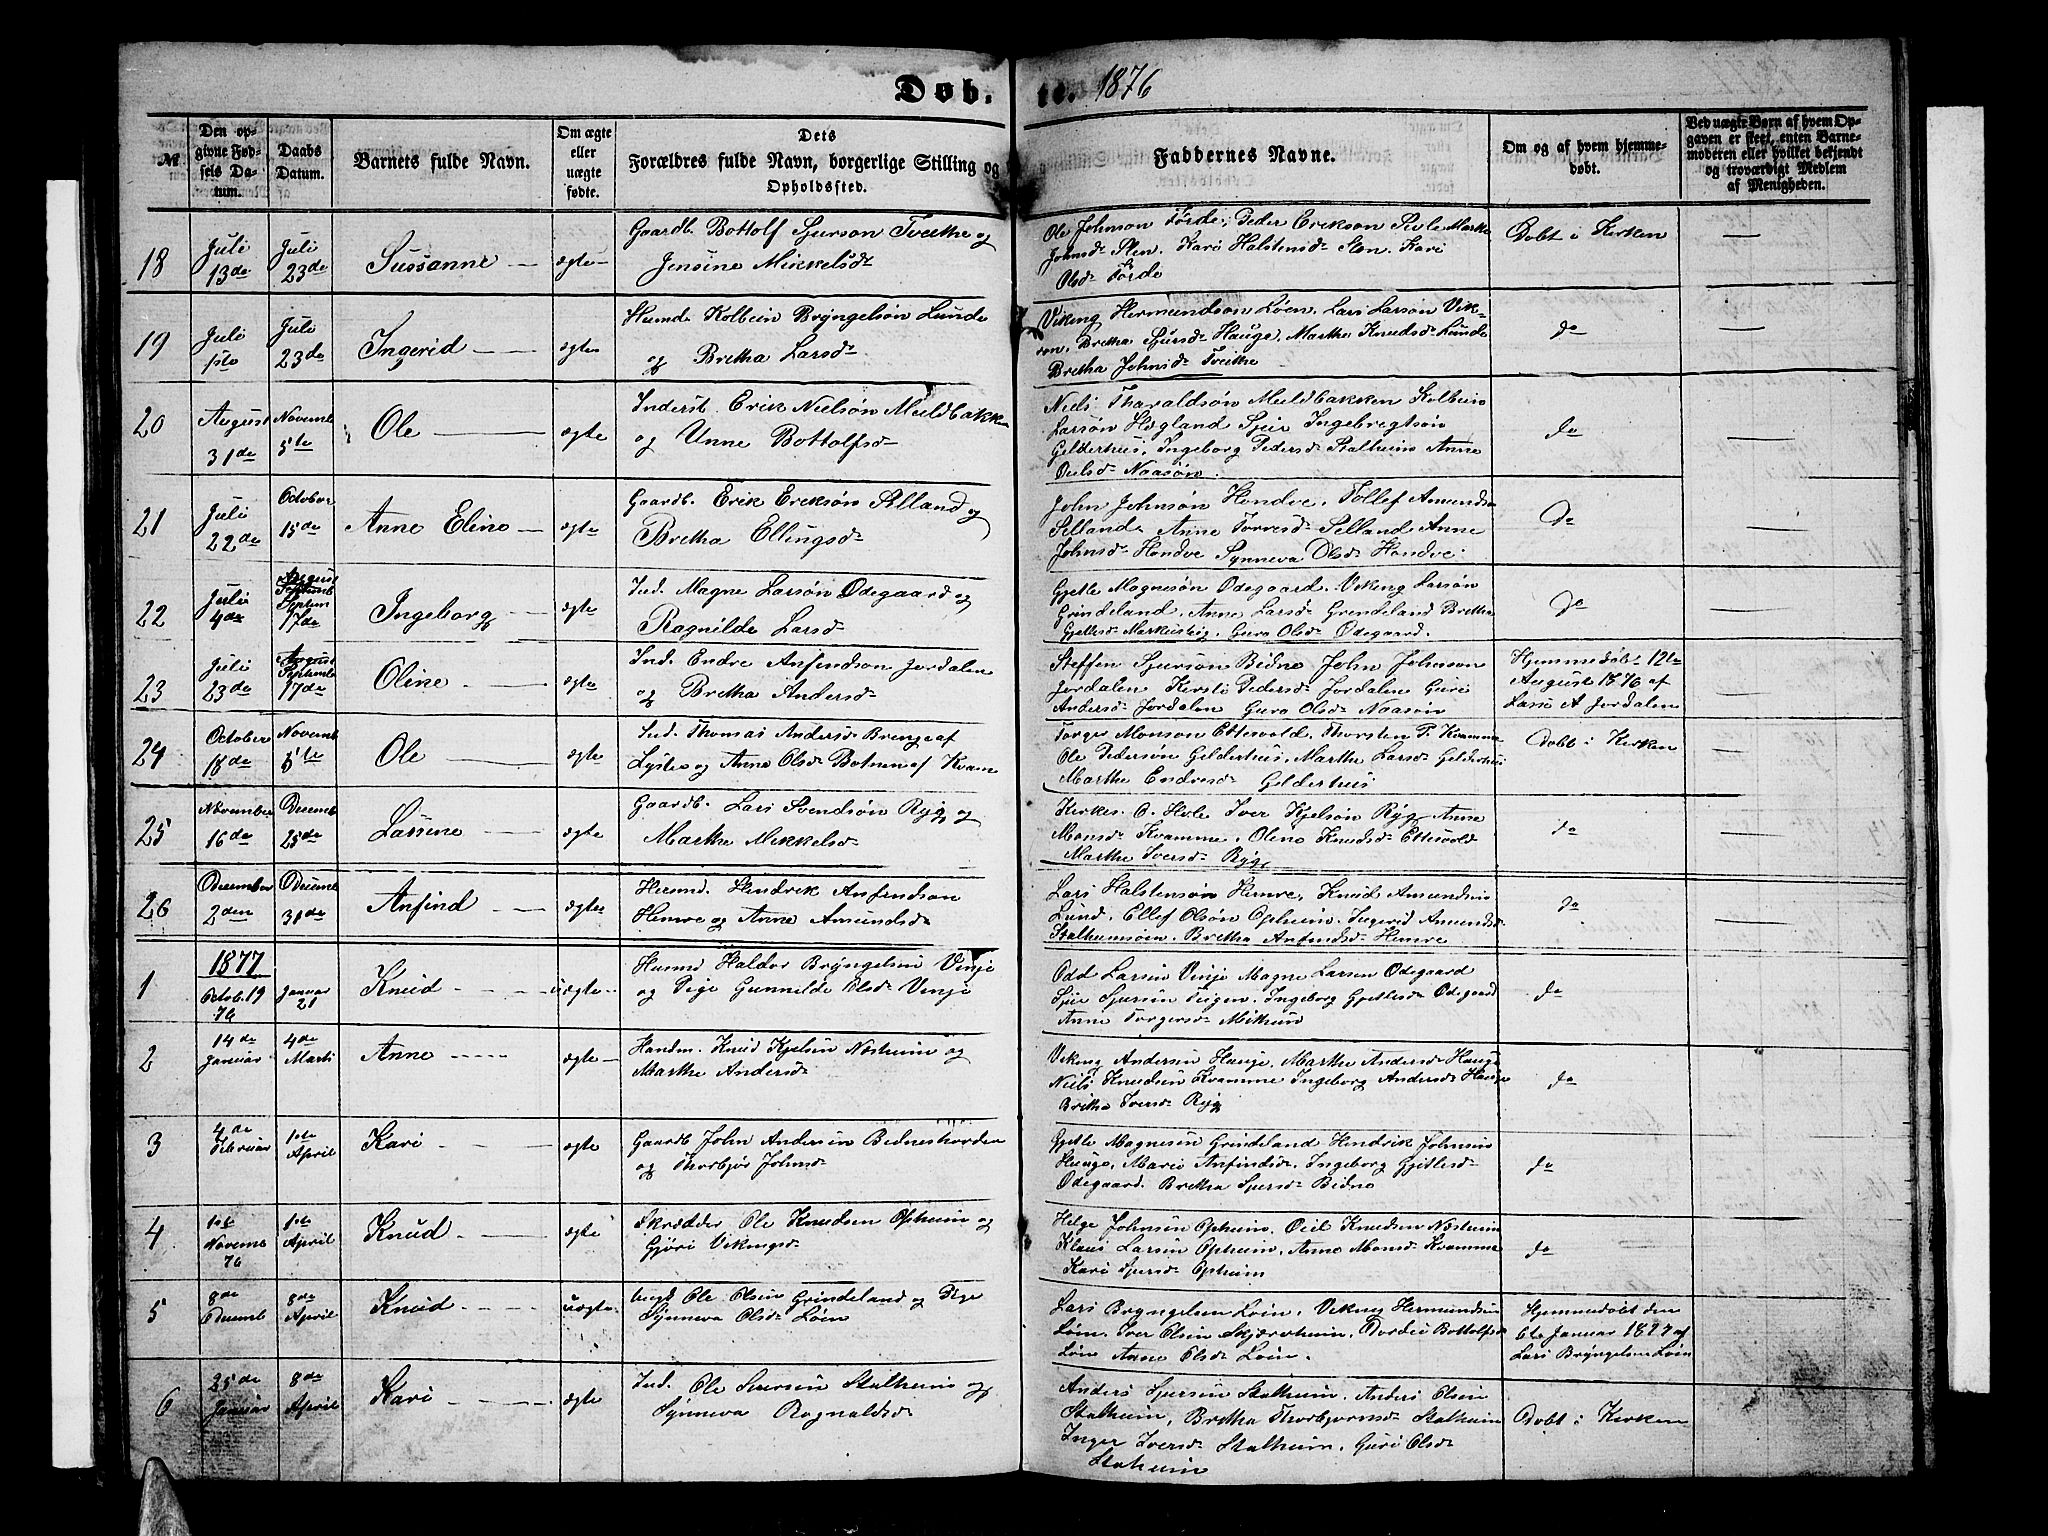 Døb. te. 1876
№
Den op-
givne Fød-
sels Da-
tum.
Daabs
Datum.
Barnets fulde Navn.
Om ægte
eller
uægte
fødte.
Dets
Forældres fulde Navn, borgerlige Stilling og
Opholdssted.
Faddernes Navne.
Om og af hvem hjemme-
døbt.
Ved uægte Børn af hvem Op-
gaven er skeet, enten Barne-
moderen eller hvilket bekjendt
og troværdigt Medlem
af Menigheden.
18
Juli
13de
Juli
23de
Sussanne
ægte
Gaardb. Bottolf Sjurson Tveithe og
Jensine Mikkelsd
Ole Johnson Førde, Peder Erikson Marthe
Johnsd Sten. Kari Halstensd Sten. Kari
Olsd Førde
Døbt i Kirken
19
Juli
1ste
Juli
23de
Ingerid
ægte
Husmd. Kolbein Bryngelsøn Lunde
og Bretha Larsd
Viking Hermundson Løen, Lars Larson Vik-
ren, Bretha Sjursd Hauge, Marthe Knudsd Lunde
Bretha Johnsd Tveithe
do
20
August
31de
Novemb
5te
Ole
ægte
Inderst. Erik Nielsøn Muldbakken
og Unne Bottolfsd
Niels Tharaldsøn Muldbakken Kolbein
Larsøn Høgland Sjur Ingebregtsøn
Gelderhus, Ingeborg Pedersd Stalheim Anne
Oeilsd Naasøn.
do
21
Juli
22de
October
15de
Anne Eline
ægte
Gaardb. Erik Eriksøn Selland og
Bretha Ellingsd
John Johnsøn Hondve. Tollef Amundsøn
Selland Anne Torresd Selland Anne
Johnsd Hondve Synneva Olsd Hondve
Do
22
Juli
4de
August
Septemb
Septem
17de
Ingeborg
ægte
Ind. Magne Larsøn Ødegaard og
Ragnilde Larsd
Gjetle Magnesøn Ødegaard. Viking Larsøn
Grindeland, Anne Larsd Grendeland Bretha
Gjetlesd Guro Olsd Ødegaard.
Do
23
Juli
23de
August
Septemb
17de
Oline
ægte
Ind. Endre Anfindson Jordalen
og Bretha Andersd
Steffen Sjursøn Bidne John Johnson
Jordalen Kersti Pedersd Jordalen Guri
Andersd Jordalen Guro Olsd Naasøn
Hjemmedøbt 12te
August 1876 af
Lasse A Jordalen
24
October
18de
Novemb
5te
Ole
ægte
Ind. Thomas Andersd Brenge af
Lyster og Anne Olsd Botnen af Kvam
Torger Monson Ettesvold, Thorsten P. Kvamme
Ole Pedersøn Gelderhus, Marthe Larsd Gelderhus
Marthe Endresd Gelderhus
Døbt i Kirken
25
November
16de
Decemb
25de
Lassine
ægte
Gaardb. Lars Svendsøn Ryg og
Marthe Mikkelsd
Kirkes. O. Hole Iver Kjelsøn Ryg Anne
Monsd Kvamme, Oline Knudsd Ettesvold
Marthe Iversd Ryg
do
26
December
2den
Decemb
31de
Anfind
ægte
Husmd. Hendrik Anfindson
Hemre og Anne Amundsd
Lars Halstensøn Hemre, Knud Amundsen
Lund. Ellef Olsøn Opheim. Ingerid Amundsd
Stalheimsøen. Bretha Anfindsd Hemre
do
1877
1
Octob. 19
76
Januar
21
Knud
uægte
Husmd Haldor Bryngelsen Vinje
og Pige Gunnilde Olsd Vinje
Odd Larsen Vinje Magne Larsen Ødegaard
Sjur Sjursen Teigen. Ingeborg Gjetlesd Ødegaard
Anne Torgersd
do
2
14de
Januar
4de
Marts
Anne
ægte
Handm. Knud Kjelsen Nøsheim og
Marthe Andersd
Viking Andersen Hauge, Marthe Andersd Hauge
Niels Knudsen Kvamme Ingeborg Andersd Hauge
Britha Iversd Ryg
do
3
4de
Februar
1ste
April
Kari
ægte
Gaardb John Andersen Bidneshorden
og Thorbjør Johnsd
Gjetle Magnesen Grindeland Hendrik Johnsen
Hauge. Mario Anfindsd. Ingeborg Gjetlesd
Ødegaard. Bretha Sjursd Bidne
do
4
1ste
Novemb
76
1ste
April
Knud
ægte
Skrædder Ole Knudsen Opheim og
Gjøri Vikingsd
Helge Johnsen Opheim. Oeil Knudsen Nøsheim
Klaus Larsen Opheim, Anne Monsd Kvamme
Kari Sjursd Opheim
do
5
8de
Decemb
8de
April
Knud
uægte
Ungk Ole Olsen Grindeland og Pige
Synneva Olsd Løen
Lars Bryngelsen Løen. Viking Hermundsen
Løen. Iver Olsen Skjærsheim. Dordei Bottolfsd
Løn Anne Olsd Løin.
Hjemmedøbt den
6te Januar 1877 af
Lars Bryngelsen Løin
6
25de
Januar
8de
April
Kari
ægte
Ind. Ole Sjursen Stalheim og
Synneva Ragnaldsd
Anders Sjursen Stalheim. Anders Olsen
Stalheim, Bretha Thorbjørnsd Stalheim
Inger Iversd Stalheim. Guri Olsd
Stalheim
Døbt i Kirken